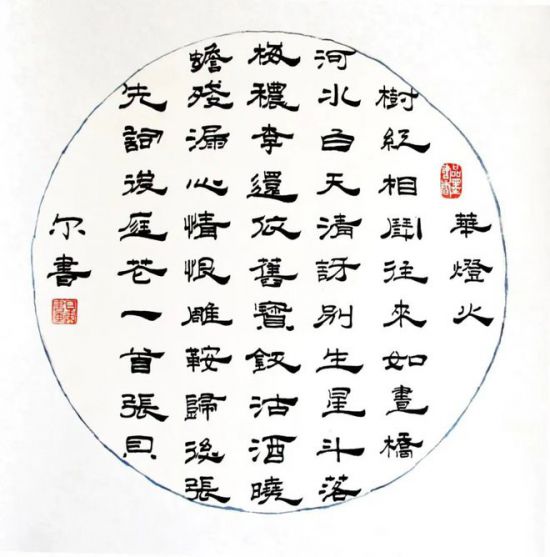 華燈火
樹紅相鬪往來如晝橋
河水白天清訝別生星斗落
梅穠李還依舊寶釵沽酒曉
蟾殘漏心情恨雕鞍歸後張
先詞後庭花一首張
尔書